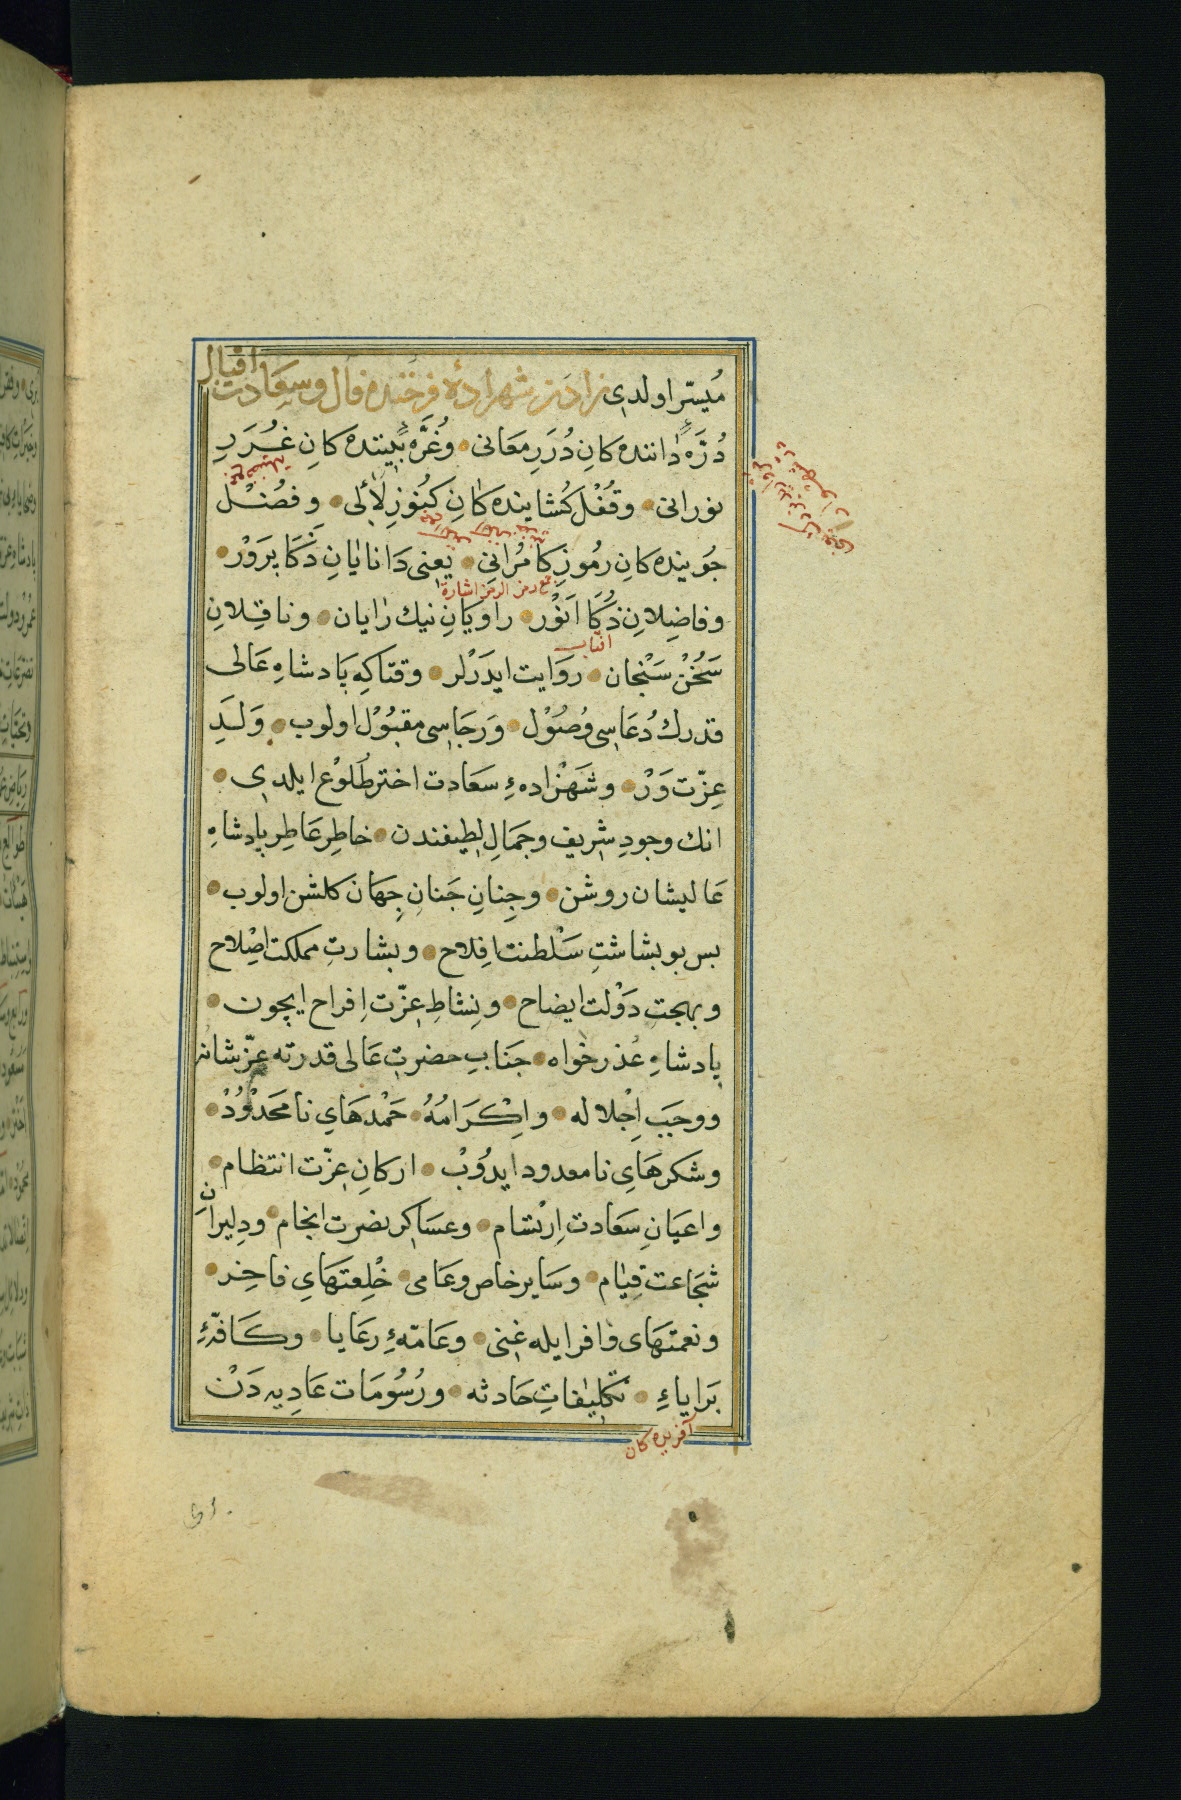 مُيسّر اولدی زادن شهزادۀ فرخنده فال وسعادت اقبال
دُرّه دانندہ کانِ دُرَرِ مَعَانی • وغُرَّه بینندہ کانِ غُرَرِ
نورانی • وقُفْل کُشاینده کانِ کُنُوزِ لآلی • وفُضْل
جُوینده کانِ رمُوزِ کامُرانی • یعنی دَانایانِ ذَکَا پرَوَرْ •
وفاضِلانِ ذُکَا اَنْوَرْ • راویَانِ نیك رایان • وناقِلانِ
سَخُنْ سَنْجان • روَایت ایدَرْلر • وقتاکِه پادشاهِ عَالی
قدرك دُعَاسِی وُصُوْل • وَرَجَاسِی مقبُوْل اولوب • وَلَدِ
عِزّت وَرْ • وشَهْزادهءِ سَعَادت اختر طُلُوْع ایلدی •
انك وجودِ شرِیف وجَمَالِ لطِیفندن • خاطِرِ عَاطِرِ پادشاهِ
عَالیشان روشن • وجِنانِ جَنانِ جِهَان کلشن اولوب •
بس بو بشاشتِ سَلْطنت اِفلاح • وبشارتِ مملکت اِصْلاح
وبهجتِ دَوْلت ایضاح • ونِشاطِ عِزّت اِفراح ایچون •
پادشاهِ عُذر خواه • جَنَابِ حضرتِ عَالی قدرته عزّ شانه
ووجَبَ اِجْلاله • واِکْرَامُهُ • حَمْدهَایِ نامَحْدُوْدْ •
وشکرهَایِ نامعدود ایدُوبْ • ارکانِ عِزّت انتظام •
واعیَانِ سَعَادت اِرْتسَام • وعسَاکرِ نصرت انجام • ودِلیرانِ
شجَاعت قِیَام • وسَایر خاص وعَامی • خْلِعتهَایِ فاخِر •
ونعمتهَای وافر ایله غنی • وعَامّهءِ رعَایا • وکَافّهءِ
بَرایاءِ • تکلِیفاتِ حَادثه • ورُسُومَات عَادِیه دَنْ
جمع رمز الرمز اشارة
آفریده کان